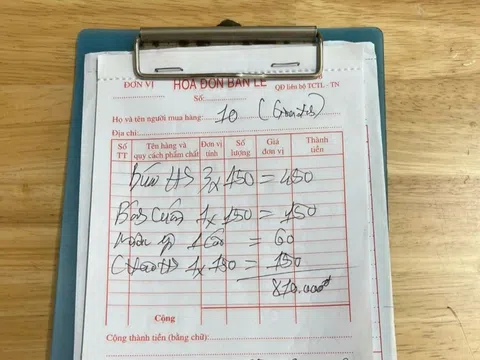 ĐƠN VỊ HÓA ĐƠN BÁN LẺ QĐ liên bộ TCTL - TN
Số:
Họ và tên người mua hàng: 10
Địa chỉ:
Số TT Tên hàng và quy cách phẩm chất Đơn vị tính Số lượng Giá đơn vị Thành tiền
Bún HS 3 x 150 = 450
Bánh Cuốn 1 x 150 = 150
= 60
Cháo HS 1 x 150 = 150
810.000đ
Cộng
Cộng thành tiền (bằng chữ):